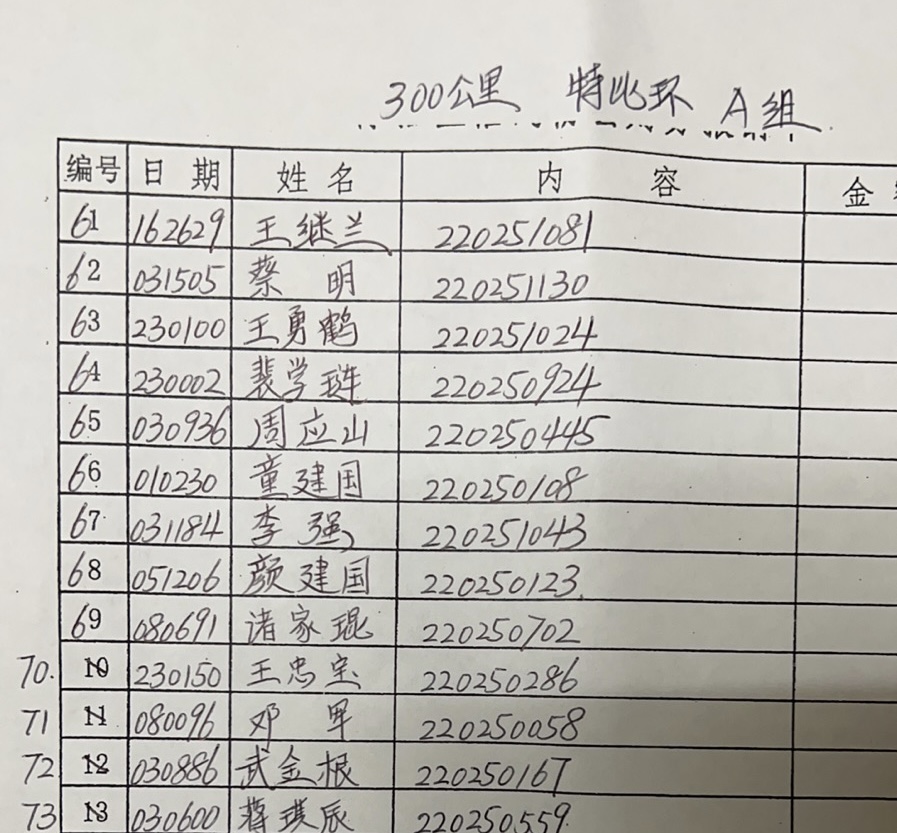 300公里 特比环 A组
编号 日期 姓名 内容 金
61 162629 王继兰 220251081
62 031505 蔡明 220251130
63 230100 王勇鹤 220251024
64 230002 裴学琏 220250924
65 030936 周应山 220250445
66 010230 童建国 220250108
67 031184 李强 220251043
68 051206 颜建国 220250123
69 080691 诸家琨 220250702
70. 10 230150 王忠宝 220250286
71 11 080096 邓军 220250058
72 12 030886 武金根 220250167
73 13 030600 蒋琪辰 220250559